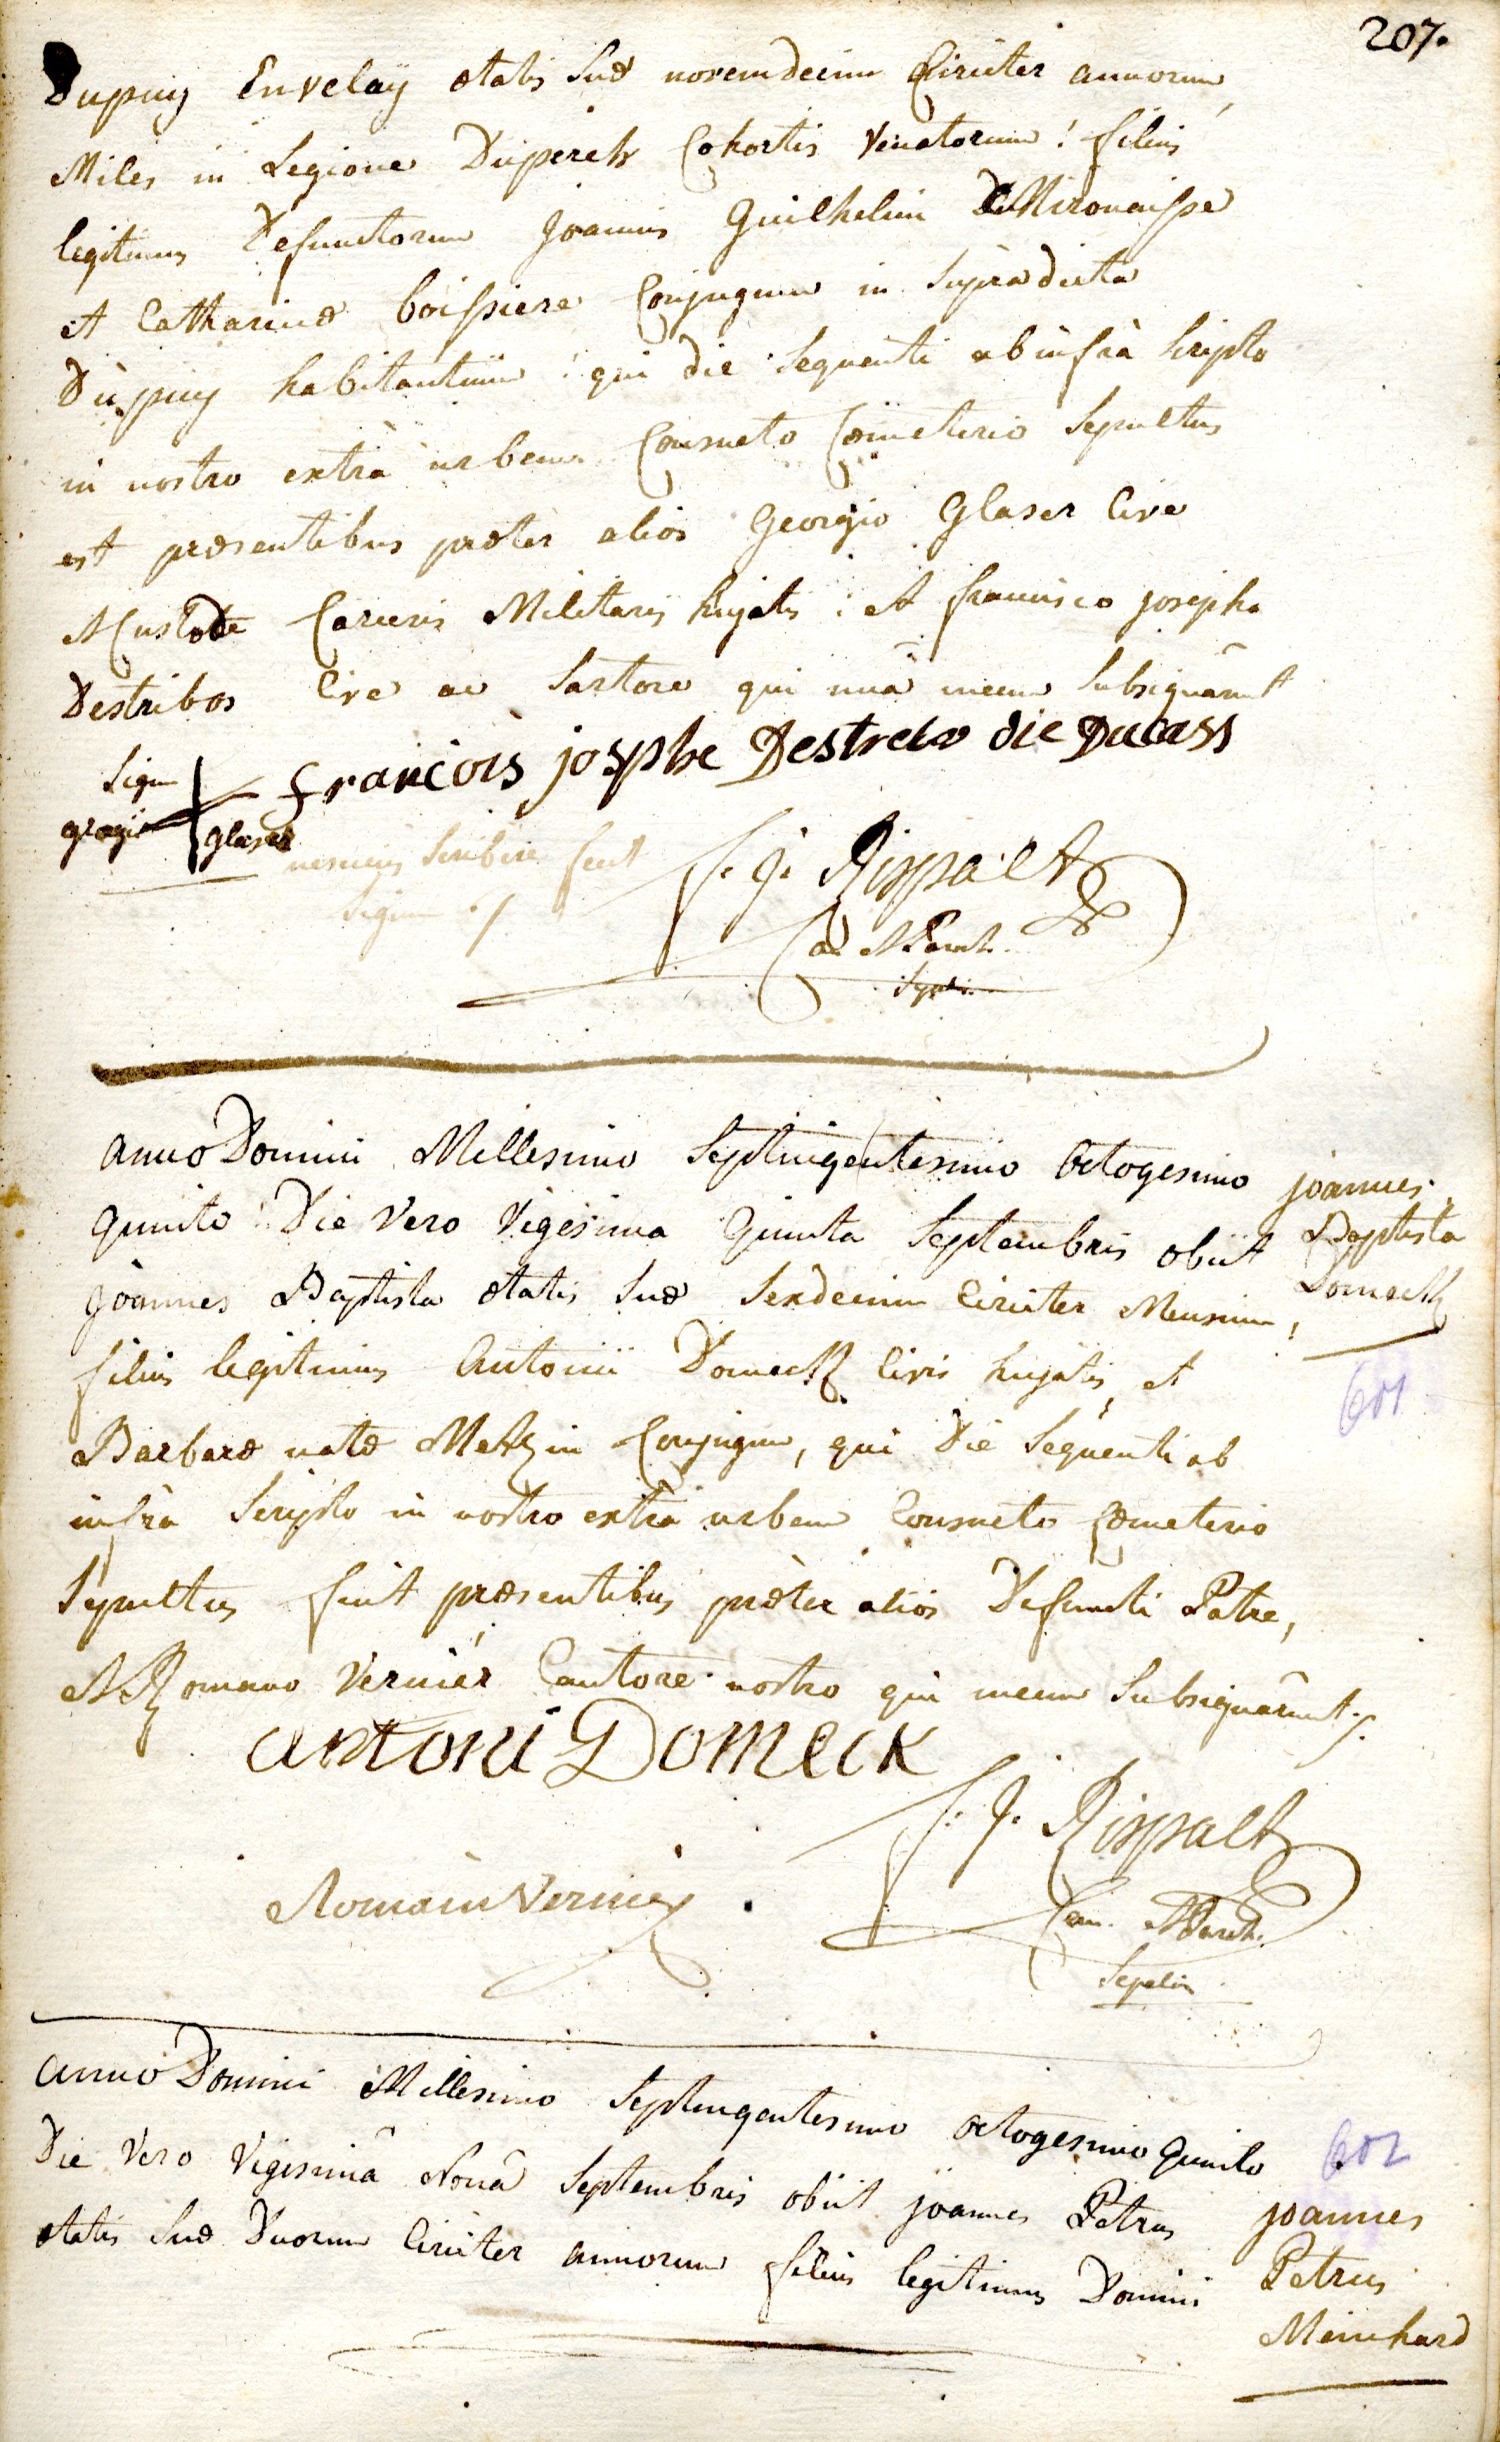 207.
Dupuy Envelaÿ ætatis suæ novemdecim Circiter annorum
Miles in Legione Duperch Cohortis Venatorum! filius
legitimus Defunctorum Joannis Guilhelmi
et Catharinæ boissiere Conjugum in supradicta
Dùpuy habitantium! qui die sequenti ab infrà scripto
in nostro extrà urbem Consueto Cœmeterio Sepultus
est præsentibus præter aliòs Georgio Glaser Cive
et Custode Carceris Militaris hujatis: et francisco josepho
Destribos Cive ac Sartore qui unà mecum subsignârunt
francois josphe die Ducass
Sign
Glaser
nescius scribere fecit
signum ./.
f. j. Rispalt
Can et Paroch.
anno Domini Millesimo Septuigentesimo octogesimo
quinto Die Vero Vigesima Quinta Septembris obiit
Joannes Baptista ætatis suæ Sexdecim Circiter Mensium,
filius legitimus Antonii Domeck Civis hujatis, et
Barbaræ natæ Metzin Conjugum, qui Die Sequenti ab
infrà Scripto in nostro extrà urbem Consueto Cœmeterio
Sepultus fuit præsentibus præter alios Defuncti Patre,
et Romano Verniér Cantore nostro qui mecum subsignârunt ./.
joannes
Baptista
Domeck
601
Antoni Domeck
f. j. Rispalt
Romain Vernier
Can. et Paroch.
Anno Domini Millesimo Septuigentesimo octogesimo Quinto
Die Vero Vigesimâ Nonâ Septembris obiit joannes Petrus
ætatis suæ Duorum Circiter annorum filius legitimus Domini
602
joannes
Petrus
Meinhard